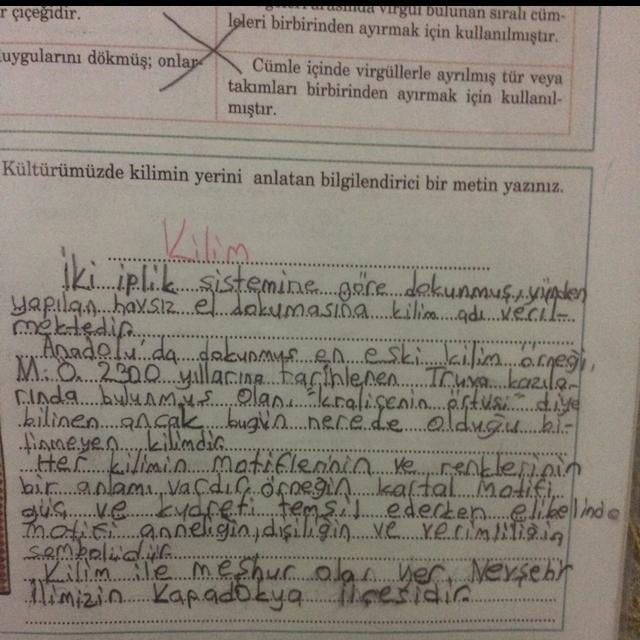 r çiçeğidir.
arasında virgül bulunan sıralı cüm-
leleri birbirinden ayırmak için kullanılmıştır.
uygularını dökmüş; onlar
Cümle içinde virgüllerle ayrılmış tür veya
takımları birbirinden ayırmak için kullanıl-
mıştır.
Kültürümüzde kilimin yerini anlatan bilgilendirici bir metin yazınız.
Kilim
İki iplik sistemine göre dokunmuş, yünden
yapılan havsız el dokumasına kilim adı veril-
mektedir.
Anadolu'da dokunmuş en eski kilim örneği,
M.Ö. 2300 yıllarına tarihlenen Truva kazıla-
rında bulunmuş olan, "kraliçenin örtüsü" diye
bilinen ancak bugün nerede olduğu bi-
linmeyen kilimdir.
Her kilimin motiflerinin ve renklerinin
bir anlamı vardır. Örneğin kartal motifi
güç ve kudreti temsil ederken elibelinde
motifi anneliğin, dişiliğin ve verimliliğin
sembolüdür.
Kilim ile meşhur olan yer, Nevşehir
ilimizin Kapadokya ilçesidir.